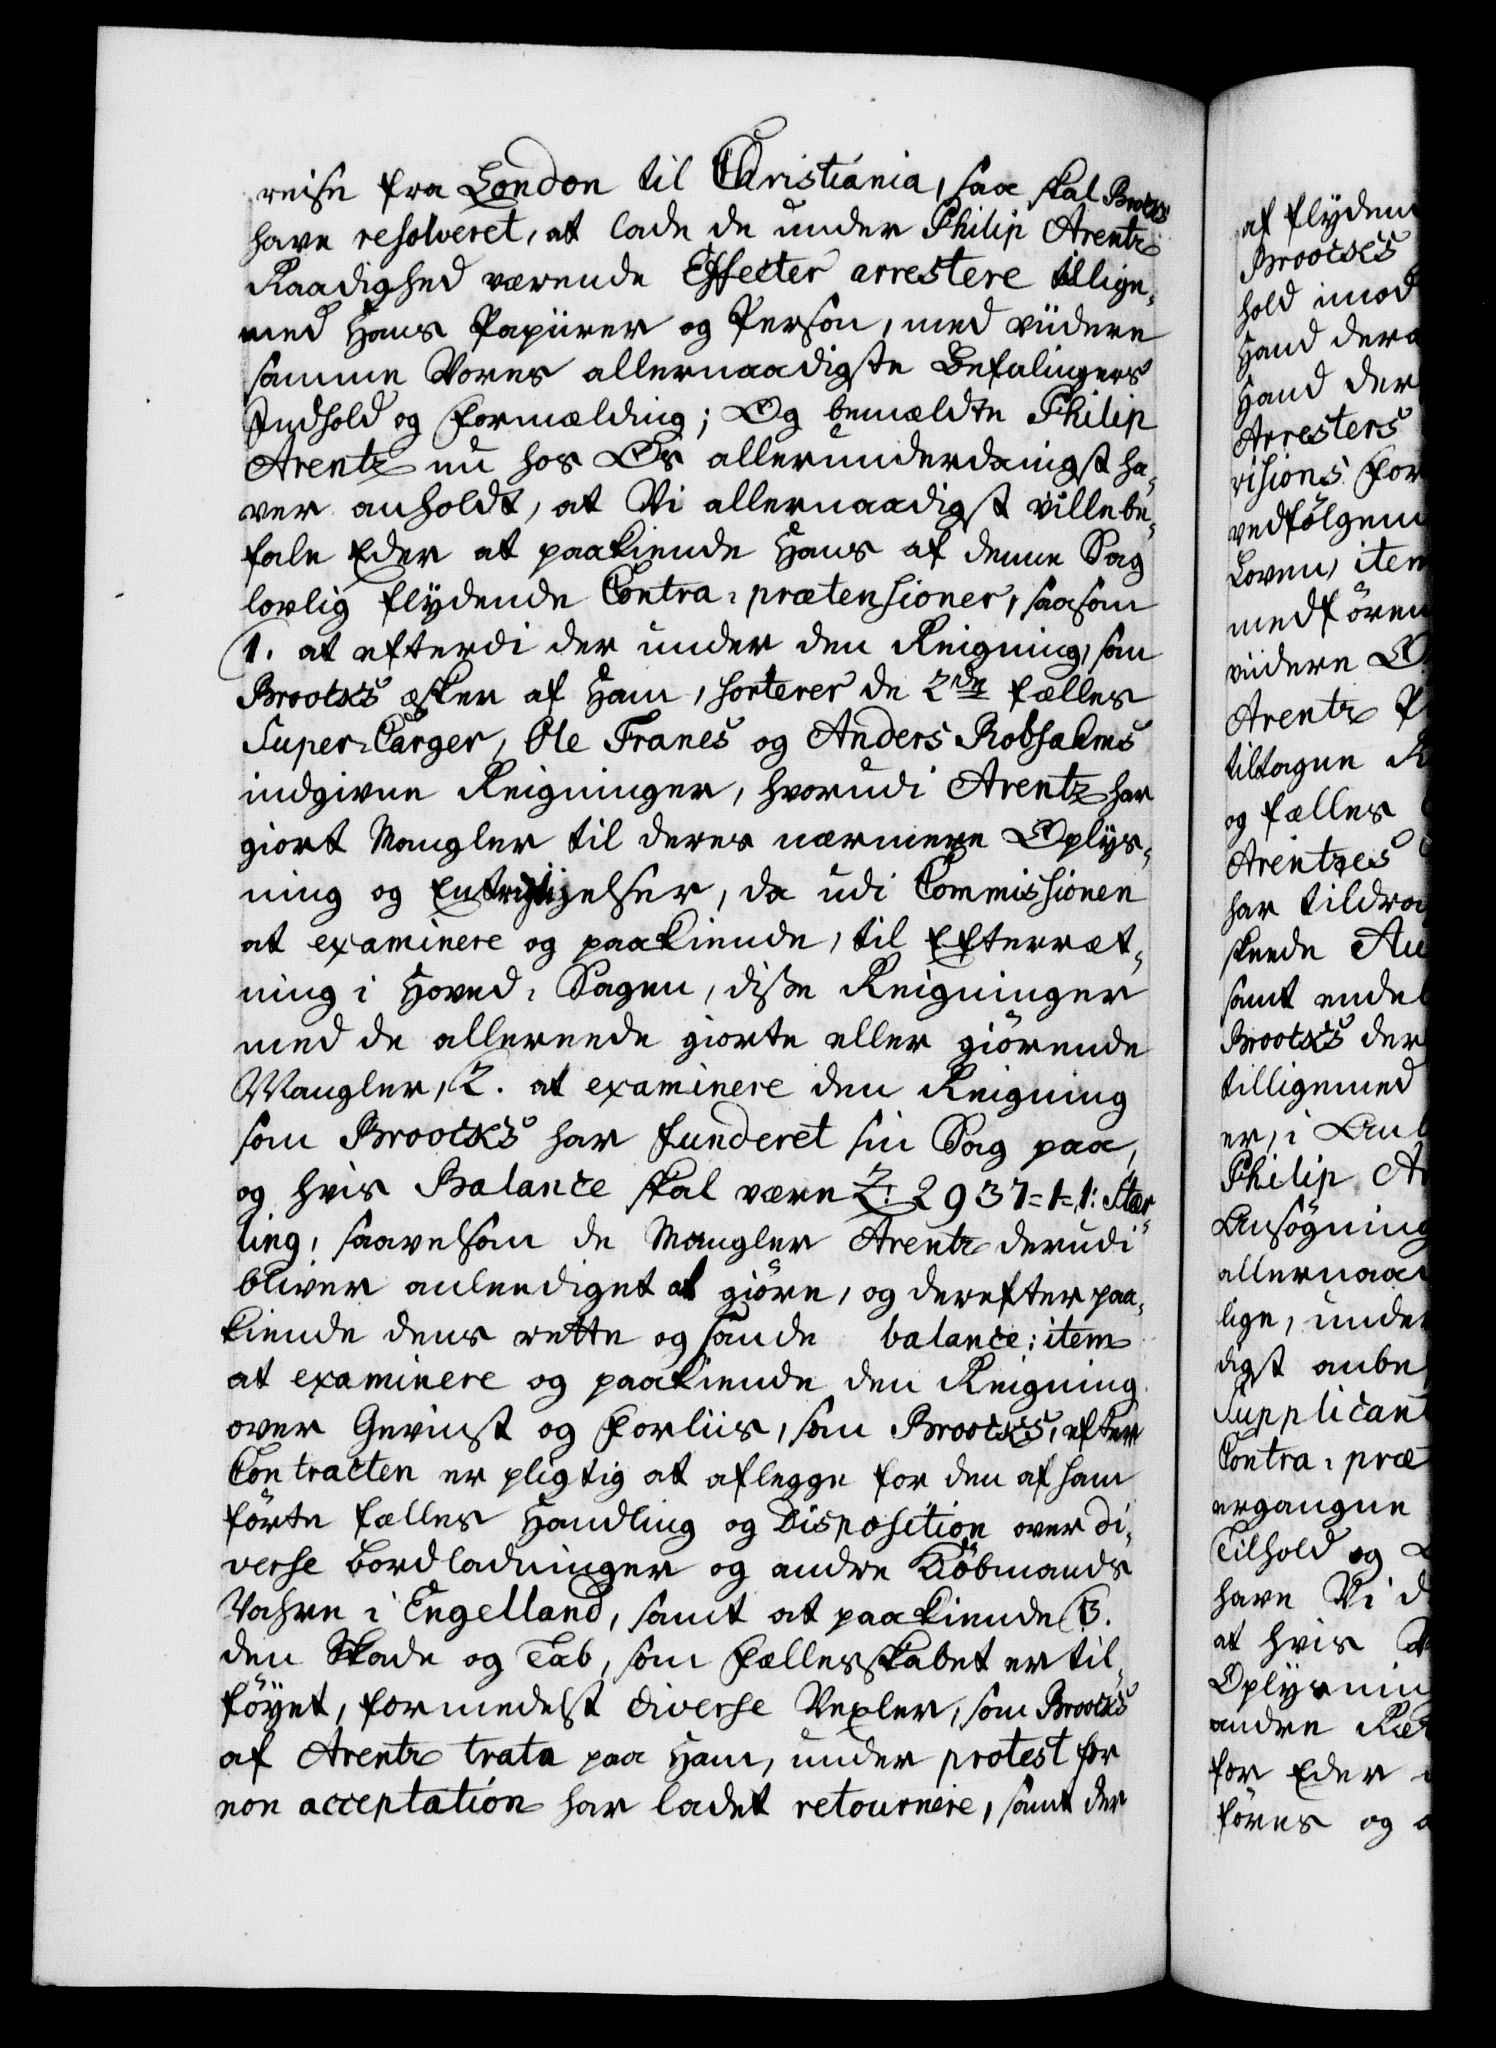 reise fra London til Christiania, saa skal Broocks
have resolveret, at lade de under Philip Arentz
Raadighed værende Effecter arrestere tillige-
med Hans Papiirer og Person, med viidere
samme Vores allernaadigste Befalingers
Indhold og Formælding; Og bemældte Philip
Arentz nu hos Os allerunderdanigst ha-
ver anholdt, at Vi allernaadigst ville be-
fale Eder at paakiende Hans af denne Sag
lovlig flydende Contra-prætensioner, saasom
1. at efterdi der under den Reigning, som
Broocks æsker af Ham, sorterer de 2de fælles
Super-Carger, Ole Franes og Anders Robsahms
indgivne Reigninger, hvorudi Arentz har
giort Mangler til deres nærmere Oplys-
ning og Entrigtigelser, da udi Commissionen
at examinere og paakiende, til Efterræt-
ning i Hoved-Sagen, disse Reigninger
med de allereede giorte eller giörende
Mangler, 2. at examinere den Reigning
som Broocks har funderet sin Sag paa,
og hvis Balance skal være £: 2937=1=1: Stær-
ling, saavelsom de Mangler Arentz derudi
bliver anleediget at giöre, og derefter paa-
kiende dens rette og sande balance; item
at examinere og paakiende den Reigning
over Gevinst og Forliis, som Broocks, efter
Contracten er pligtig at aflegge for den af ham
förte fælles Handling og Disposition over di-
verse Bordladninger og andre Köbmands
Vahre i Engelland, samt at paakiende 3.
den Skade og Tab, som Fællesskabet er til-
föyet, formedelst diverse Vexler, som Broocks
af Arentz trata paa Ham, under protest for
non acceptation har ladet retournere, samt der
af flyden
Broocks
hold imod
Hand dera
Hand der
Arresters
visions For
vedfölgen
Loven, item
medfören
viidere
Arentz
tiltagne
og fælles
Arentzes
har tildra
skeede Au
samt endel
Broocks der
tilligemed
er, i
Philip Ar
Ansögning
allernaa
lige, under
digst anbe
Supplican
Contra-præ
ergangne
Tilhold og
have Vi d
at hvis
Oplysnin
andre
for Eder
föres og